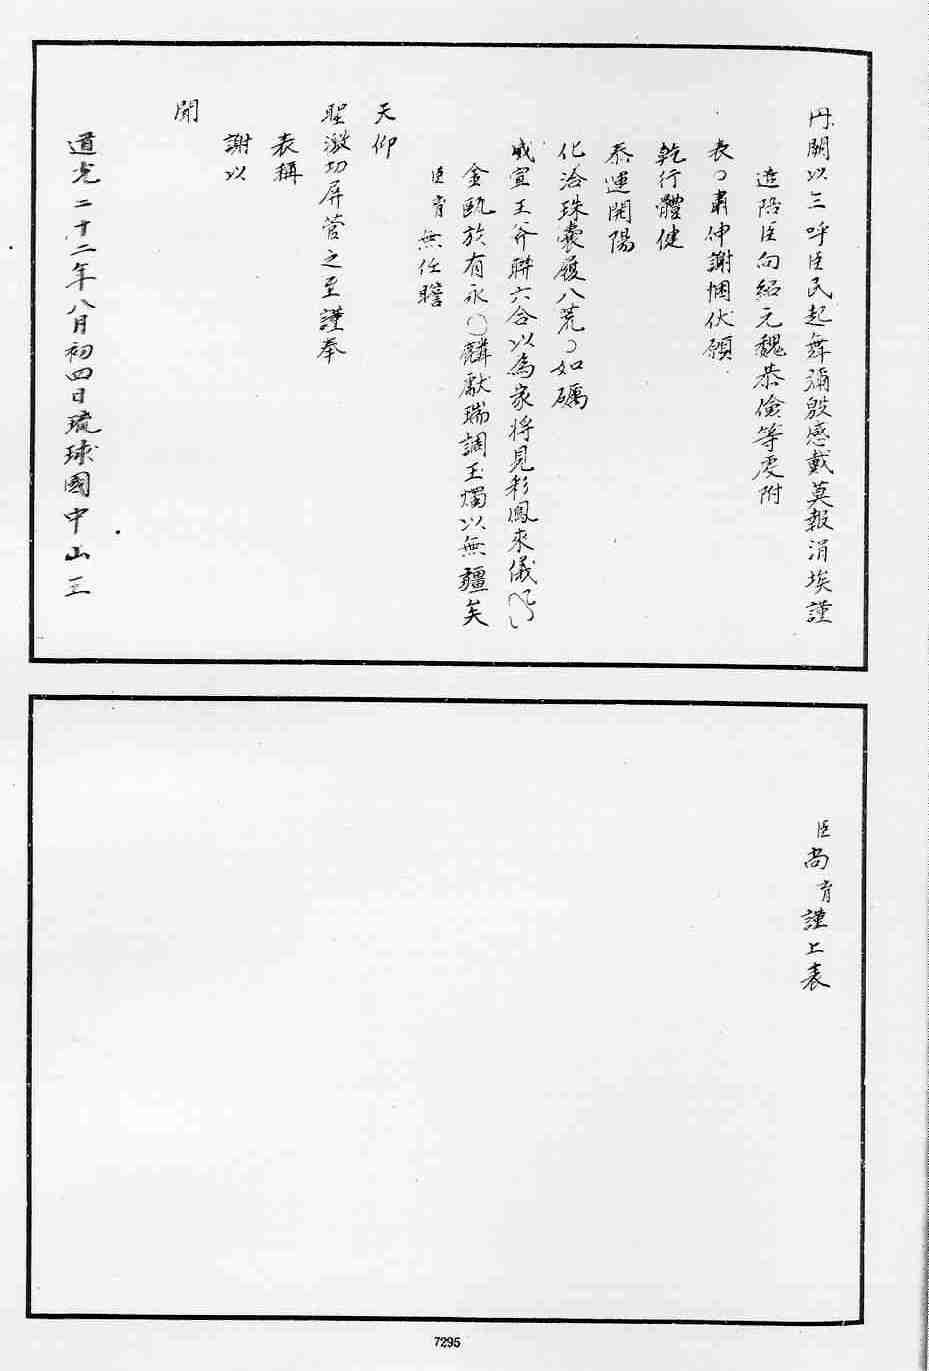 丹闕以三呼臣民起舞彌殷感戴莫報涓埃謹
遣陪臣向紹元魏恭儉等虔附
表肅伸謝悃伏願
乾行體健
泰運開陽
化洽珠囊履八荒如礪
威宣玉斧聯六合以為家將見彩鳳來儀
金甌於有永〇麟獻瑞調玉燭以無疆矣
臣育無任瞻
天仰
聖激切屏營之至謹奉
表稱
謝以
聞
道光二十二年八月初四日琉球國中山王
臣尚育謹上表
7295